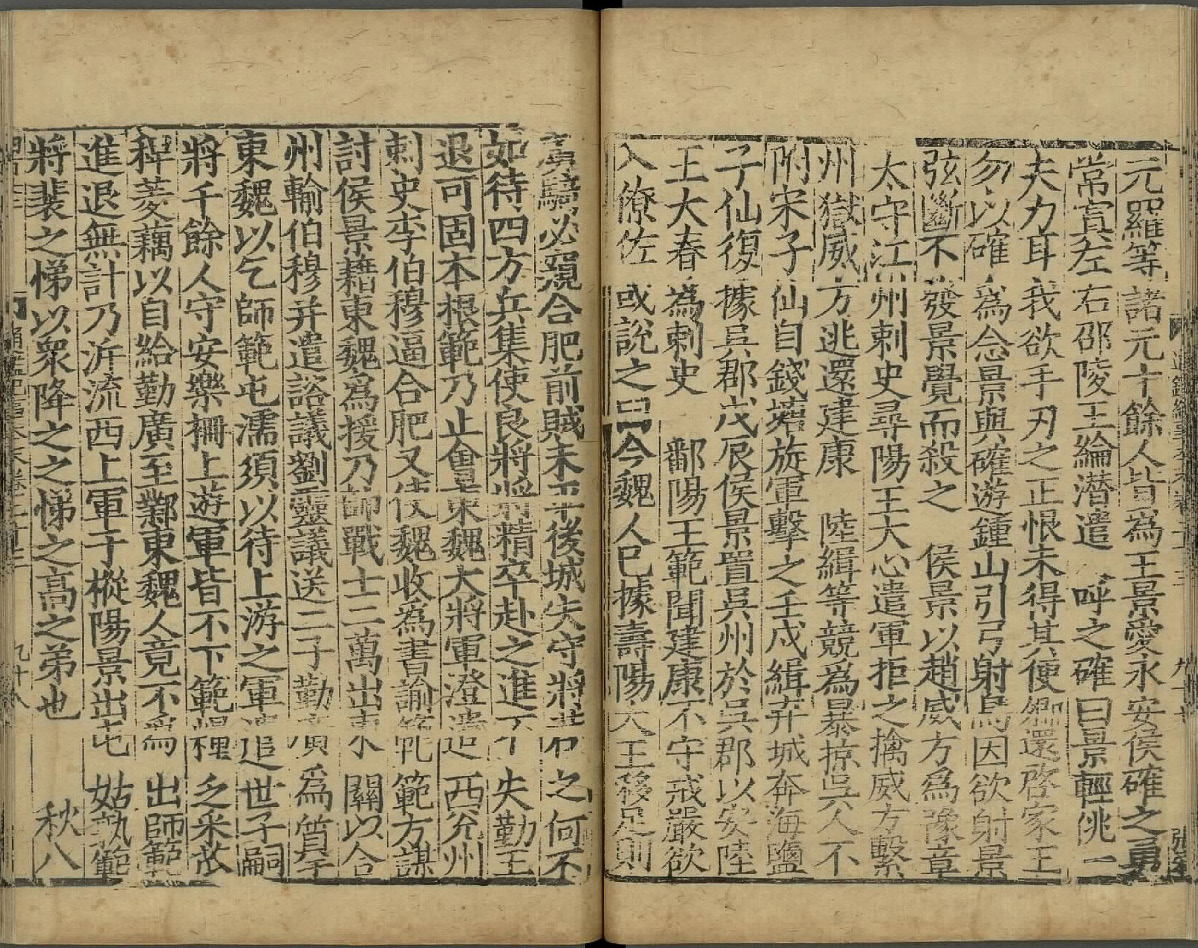 元羅等諸元十餘人皆為王景愛永安侯確之勇
常寘左右邵陵王綸潛遣 呼之確曰景輕佻一
夫力耳我欲手刃之正恨未得其便卿還啓家王
勿以確為念景與確遊鍾山引弓射鳥因欲射景
弦斷不發景覺而殺之 侯景以趙威方為豫章
太守江州刺史尋陽王大心遣軍拒之擒威方繫
州獄威方逃還建康 陸緝等競為暴掠吳人不
附宋子仙自錢塘旋軍擊之壬戌緝弃城奔海鹽
子仙復據吳郡戊辰侯景置吳州於吳郡以安陸
王大春為刺史 鄱陽王範聞建康不守戒嚴欲
入僚佐或說之曰今魏人已據壽陽大王移足則
虜騎必窺合肥前賊未平後城失守將若之何不
如待四方兵集使良將將精卒赴之進不失勤王
退可固本根範乃止會東魏大將軍澄遣西兖州
刺史李伯穆逼合肥又使魏收為書諭範範方謀
討侯景藉東魏為援乃帥戰士二萬出東關以合
州輸伯穆并遣諮議劉靈議送二子勤廣為質于
東魏以乞師範屯濡須以待上游之軍遣世子嗣
將千餘人守安樂柵上遊軍皆不下範糧乏采苽
稗菱藕以自給勤廣至鄴東魏人竟不為出師範
進退無計乃泝流西上軍于樅陽景出屯姑孰範
將裴之悌以眾降之之悌之高之弟也 秋八